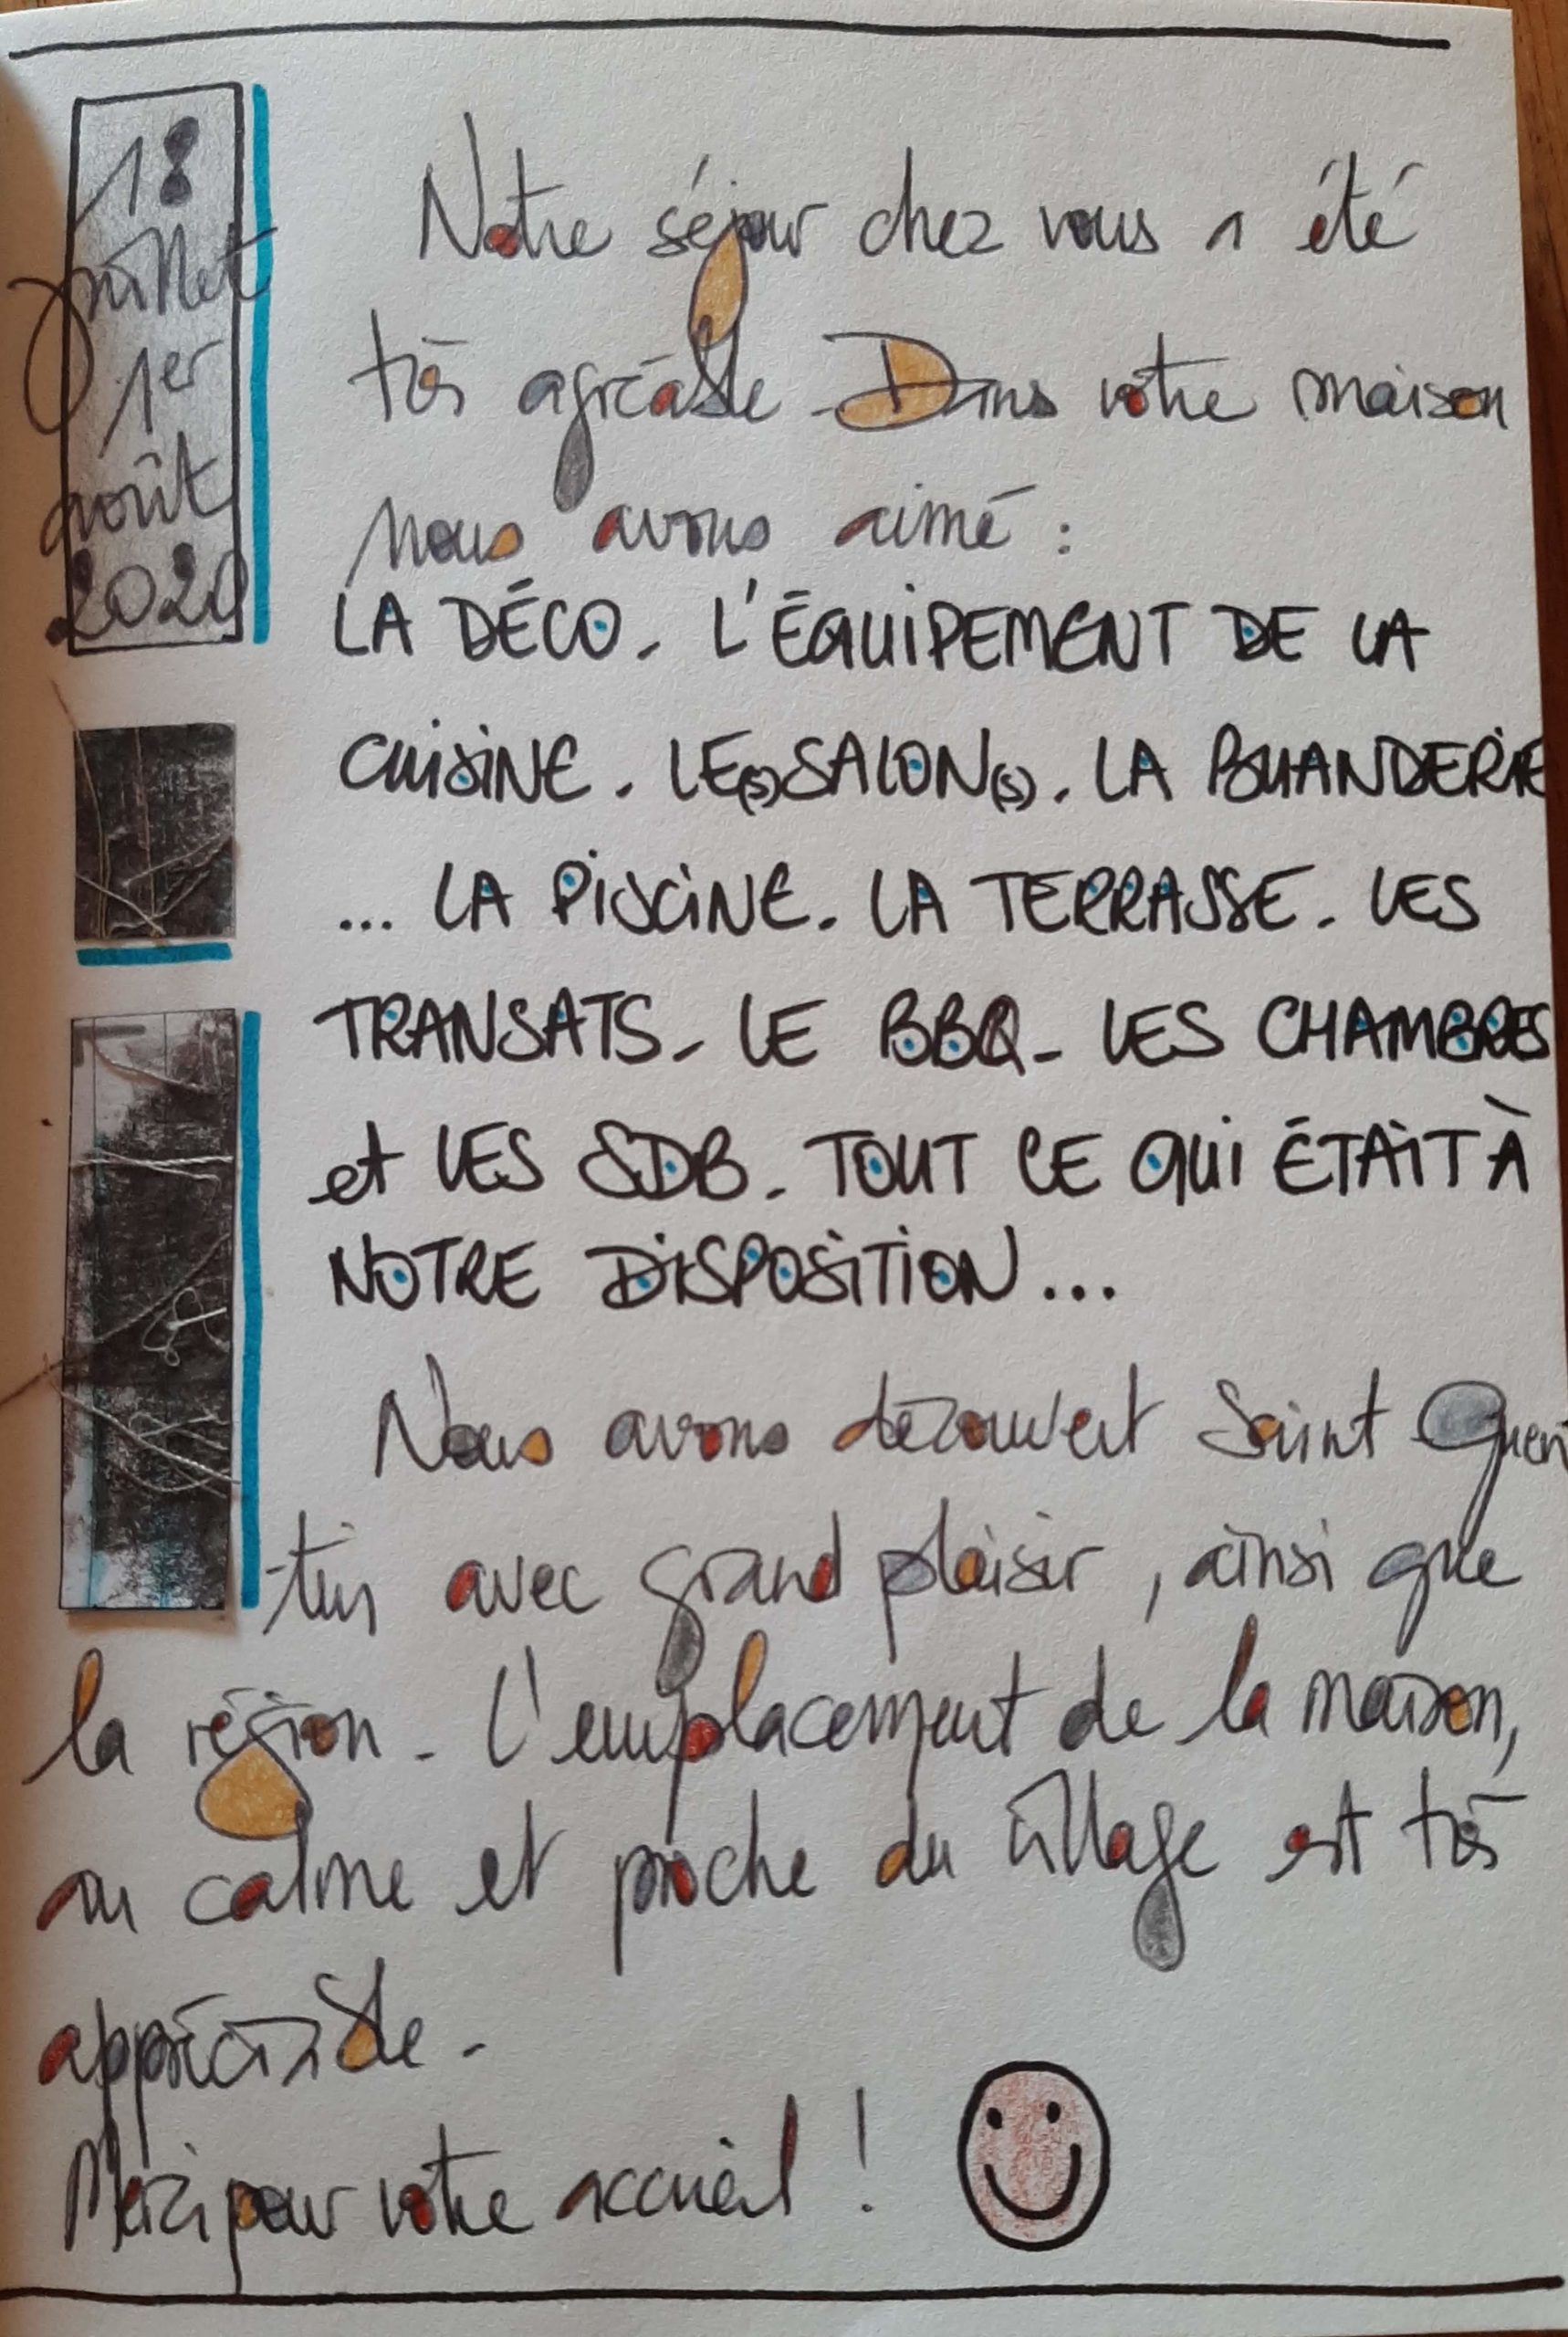 18
juillet
1er
août
2020
Notre séjour chez vous a été
très agréable. Dans votre maison
nous avons aimé :
LA DÉCO. L'ÉQUIPEMENT DE LA
CUISINE. LE(S) SALON(S). LA BUANDERIE
... LA PISCINE. LA TERRASSE. LES
TRANSATS. LE BBQ. LES CHAMBRES
et LES SDB. TOUT CE QUI ÉTAIT À
NOTRE DISPOSITION...
Nous avons découvert Saint Quen
-tin avec grand plaisir, ainsi que
la région. L'emplacement de la maison,
au calme et proche du village est très
appréciable.
Merci pour votre accueil !